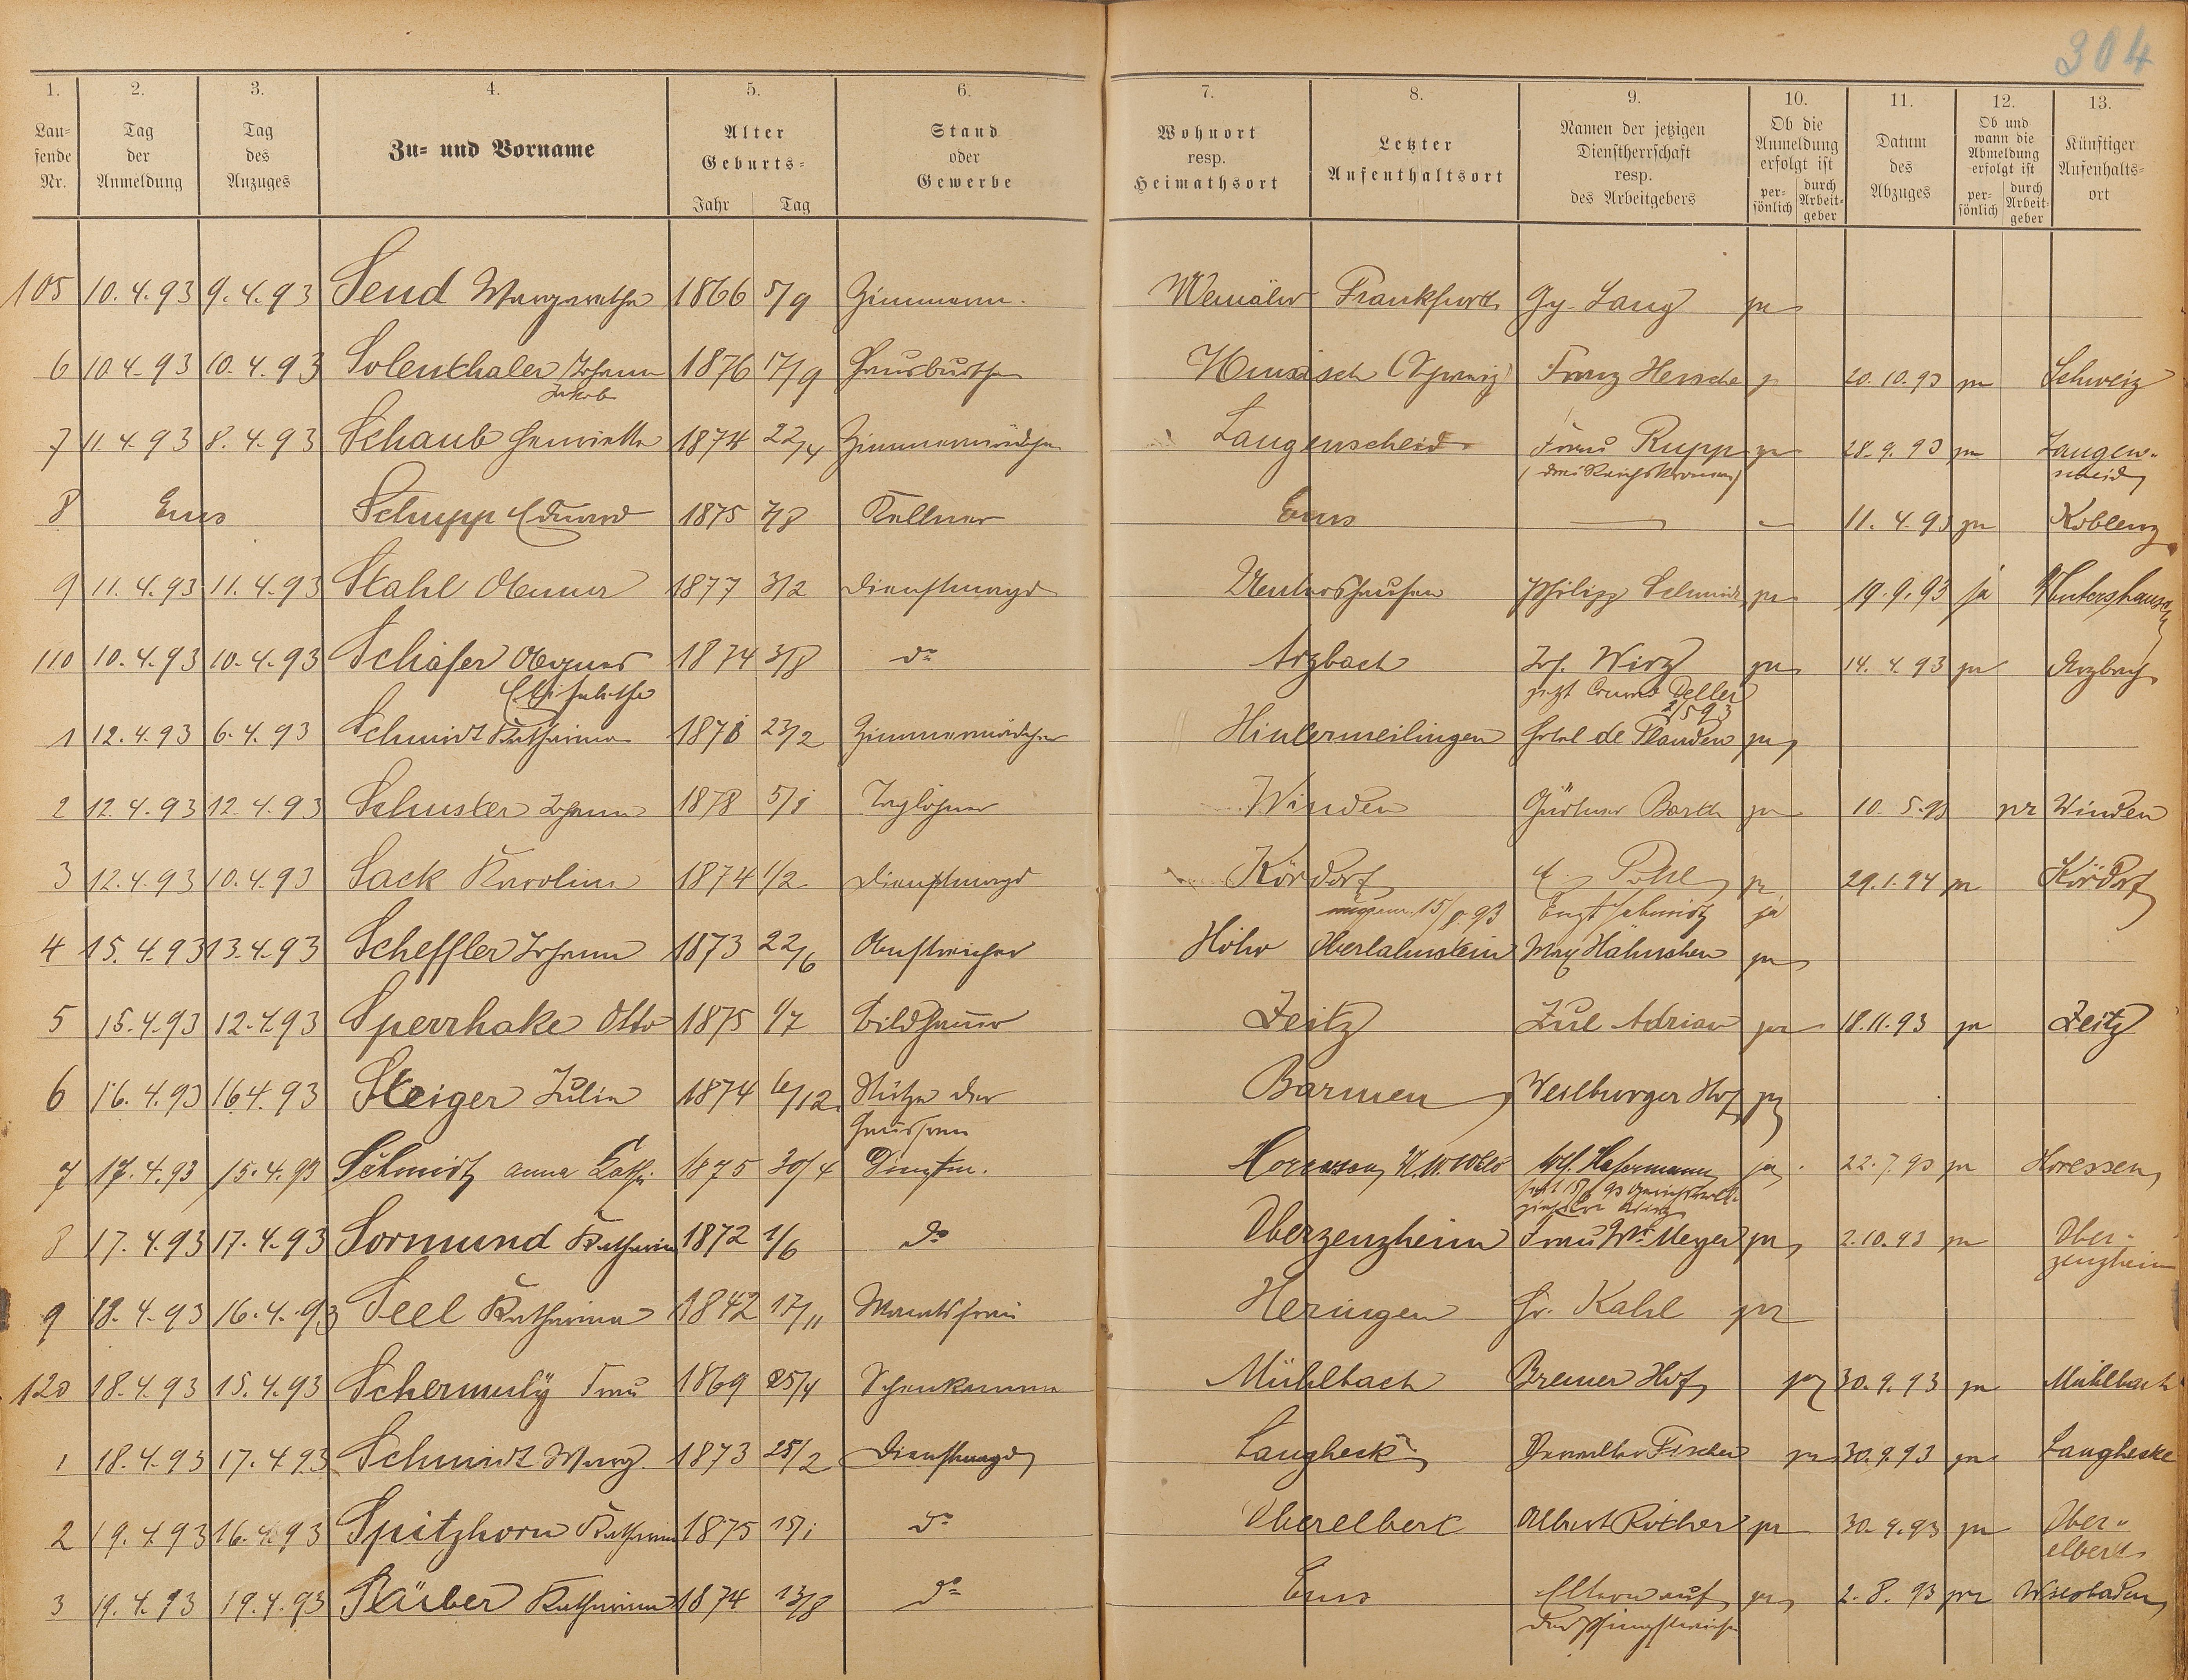 304
1. 2. 3. 4. 5. 6. 7. 8. 9. 10. 11. 12. 13.
Lau=
fende
Nr.
Tag
der
Anmeldung
Tag
des
Anzuges
Zu= und Vorname
Alter
Geburts=
Jahr Tag
Stand
oder
Gewerbe
Wohnort
resp.
Heimathsort
Letzter
Aufenthaltsort
Namen der jetzigen
Dienstherrschaft
resp.
des Arbeitgebers
Ob die
Anmeldung
erfolgt ist
per-
sönlich
durch
Arbeit-
geber
Datum
des
Abzuges
Ob und
wann die
Abmeldung
erfolgt ist
per-
sönlich
durch
Arbeit-
geber
Künftiger
Aufenthalts=
ort
105 10.4.93 9.4.93 Send Margarethe 1866 5/9 Frankfurt Lang ja
6 10.4.93 10.4.93 Solenthaler Johann 1876 17/9 Hausbursche Franz Hersche ja 20.10.93 ja Schweiz
Jakob
7 11.4.93 8.4.93 Schaub Henriette 1874 22/4 Zimmermädchen Langenscheid Frau Rupp ja 28.9.93 ja Langen-
(drei Reichskronen) scheid
8 Ems Schupp Eduard 1875 7/8 Kellner Ems — — 11.4.93 ja Koblenz
9 11.4.93 11.4.93 Stahl Anna 1877 3/2 Dienstmagd Philipp Schmidt ja 19.9.93 ja
110 10.4.93 10.4.93 Schäfer Agnes 1874 3/8 do Arzbach Jos. Wirz ja 14.4.93 ja Arzbach
Elisabetha jetzt Deller
2/5 93
1 12.4.93 6.4.93 Schmidt Katharina 23/2 Zimmermädchen Hintermeilingen Hotel de Flandre ja
2 12.4.93 12.4.93 Schuster Johann 1878 5/1 Taglöhner Winden Gärtner Barth ja 10.5.93 ja Winden
3 12.4.93 10.4.93 Sack Karoline 1874 1/2 Dienstmagd Kördorf Pohl ja 29.1.94 ja Kördorf
15/8.93 Schmidt ja
4 15.4.93 13.4.93 Scheffler Johann 1873 22/6 Anstreicher Höhr Oberlahnstein Max Hähnchen ja
5 15.4.93 12.4.93 Sperrhake Otto 1875 1/7 Bildhauer Zeitz Jul Adrian ja 18.11.93 ja Zeitz
6 16.4.93 16.4.93 Steiger Julie 1874 6/12 Stütze der Barmen Weilburger Hof ja
Hausfrau
7 17.4.93 15.4.93 Schmidt Anna Kath. 1875 30/4 Dienstm. Horessen Hafermann ja 22.7.93 ja Horessen
8 17.4.93 17.4.93 Sormund Katharina 1872 1/6 do Oberzeuzheim Frau Wwe Meyer ja 2.10.93 ja Ober-
zeuzheim
9 18.4.93 16.4.93 Seel Katharina 1842 17/11 Monatsfrau Heringen Fr. Kahl ja
120 18.4.93 15.4.93 Schermuly Frau 1869 25/4 Mühlbach Bremer Hof ja 30.9.93 ja Mühlbach
1 18.4.93 17.4.93 Schmidt Marg. 1873 25/2 Dienstmagd Langheck Verwalter Fischer ja 30.9.93 ja Langhecke
2 19.4.93 16.4.93 Spitzhorn Katharina 1875 15/1 do Oberelbert Albert Röther ja 30.9.93 ja Ober-
elbert
3 19.4.93 19.4.93 Katharina 1874 13/8 do Ems Eltern auf ja 2.8.93 ja Wiesbaden
der Pfingstweise